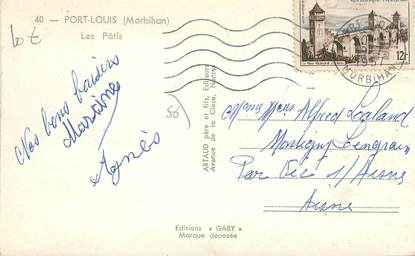 40 — PORT-LOUIS (Morbihan)
Les Pâtis
10 €
56
Nos bons baisers
Martine
Agnès
ARTAUD père et fils, Editeurs
Avenue de la Close, Nantes
12F
MORBIHAN
Mme Alfred
Montigny Lengrain
Par Vic s/Aisne
Aisne
Editions « GABY »
Marque déposée